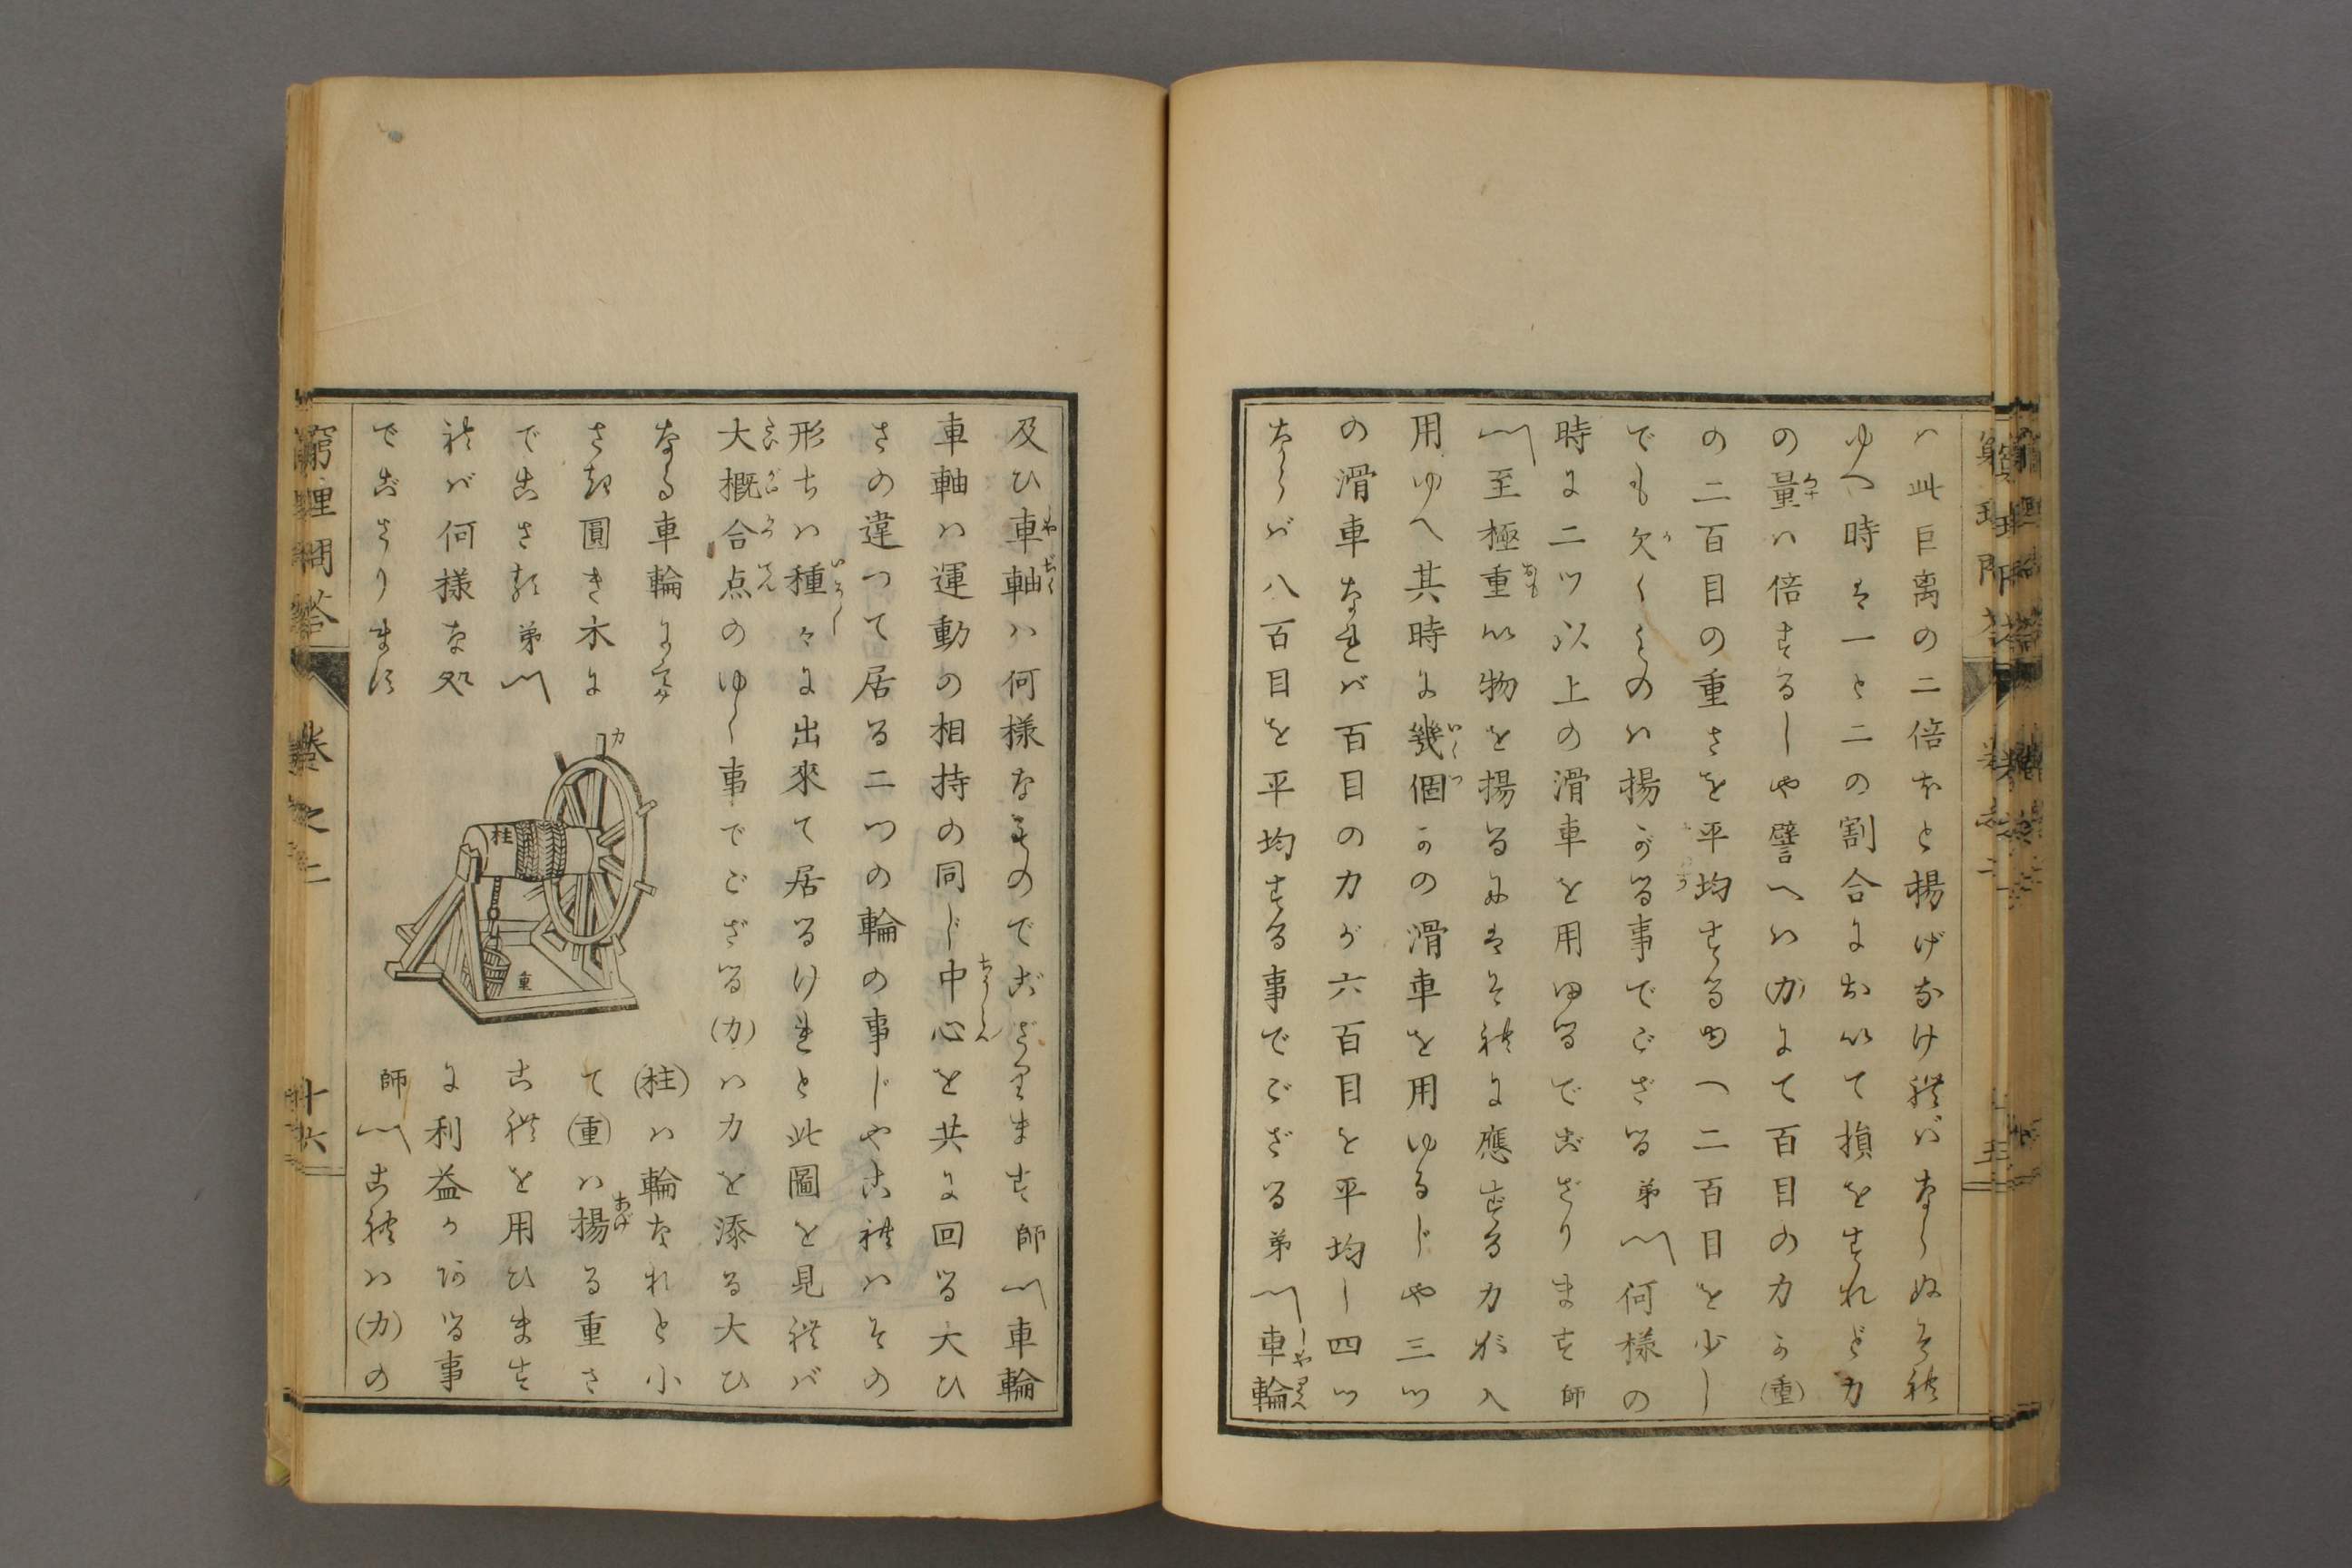 ハ此巨离の二倍ほと揚げなけ礼バならぬそ礼
ゆへ時は一と二の割合におゐて損をすれど力
の量ハ倍するしや譬へハ(力)にて百目の力か(重)
の二百目の重さを平均するゆへ二百目を少し
でも欠くものハ揚がる事でござる弟〽何様の
時に二ツ以上の滑車を用ゆるでござります師
〽至極重い物を揚るにはそ礼に應ずる力が入
用ゆへ其時に幾個かの滑車を用ゆるじや三ツ
の滑車なればバ百目の力が六百目を平均し四ツ
ならバ八百目を平均する事でござる弟〽車輪
及ひ車軸ハ何様なものでござります師〽車輪
車軸ハ運動の相持の同じ中心を共に回る大ひ
さの違つて居る二つの輪の事じやこ礼ハその
形ちハ種々に出來て居るけれと此圖を見礼バ
大概合点のゆく事でござる(力)ハ力を添る大ひ
なる車輪に
(柱)ハ輪なれと小
さき圓き木に
て(重)ハ揚る重さ
でござる弟〽
こ礼を用ひます
礼バ何様な処
に利益かある事
でござります
師〽こ礼ハ(力)の
力
柱
重
窮理問答
卷之二
十六